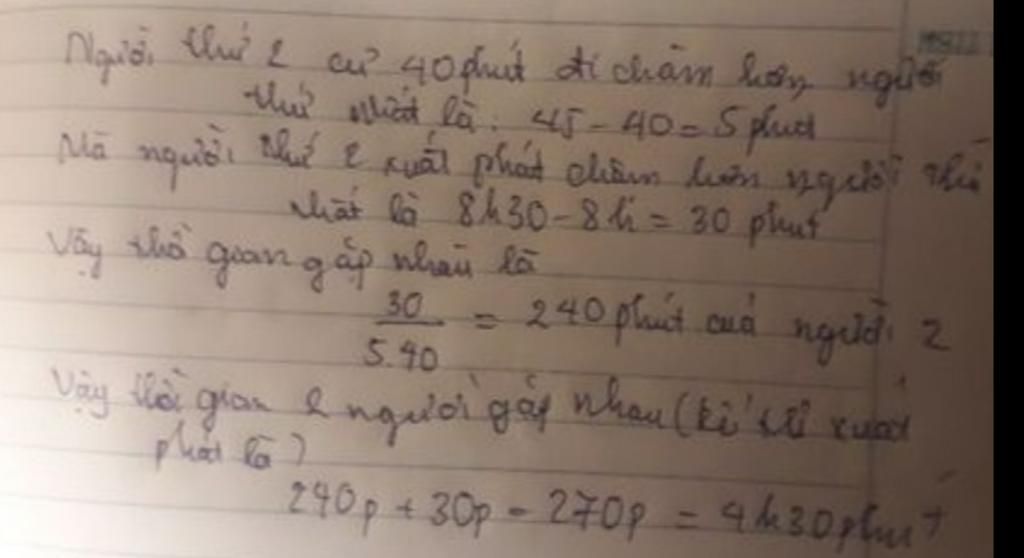 Người thứ 2 cứ 40 phút đi chậm hơn người
thứ nhất là: 45 - 40 = 5 phút
Mà người thứ 2 xuất phát chậm hơn người thứ
nhất là 8h30 - 8h = 30 phút
Vậy thờ gian gặp nhau là
30 / 5.40 = 240 phút của người 2
Vậy thời gian 2 người gặp nhau (kể từ xuất
phát là)
240p + 30p = 270p = 4h30phút